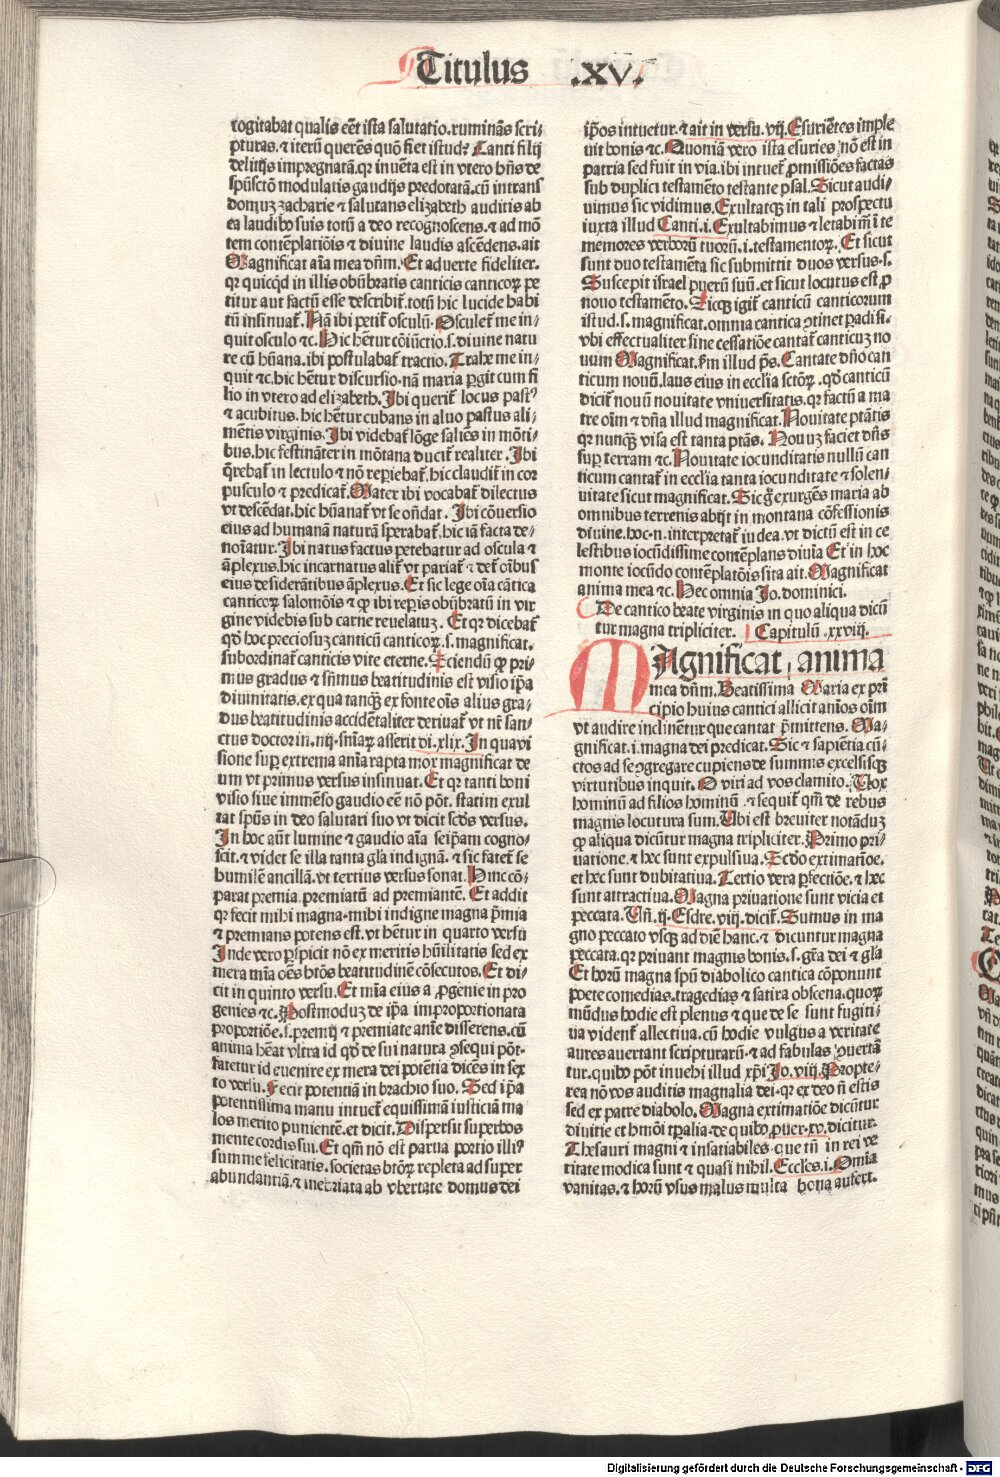 Titulus .XV.
cogitabat qualis eēt ista salutatio.ruminās scri⸗
pturas.⁊ iterū querēs quō fiet istud? Tanti filij
delitijs impregnatā.qꝛ inuēta est in vtero hn̄s de
spūsctō modulatis gaudijs predotatā.cū intrans
domuꝫ zacharie ⁊ salutans elizabeth auditis ab
ea laudibꝰ suis totū a deo recognoscens.⁊ ad mō
tem contēplatiōis ⁊ diuine laudis ascēdens.ait
Magnificat aīa mea dn̄m. Et aduerte fideliter.
qꝛ quicqͥd in illis obūbratis canticis canticoꝝ pe
titur aut factū esse describit̄.totū hic lucide habi
tū insinuat̄. Nā ibi petit̄ osculū. Osculet̄ me in⸗
quit osculo ⁊c. Hic hētur cōiūctio.s.diuine natu
re cū hūana.ibi postulabat̄ tractio. Trahe me in⸗
quit ⁊c.hic hētur discursio.nā maria ꝑgit cum fi
lio in vtero ad elizabeth. Ibi querit̄ locus pastꝰ
⁊ acubitus.hic hētur cubans in aluo pastus ali⸗
mētis virginis. Ibi videbat̄ lōge saliēs in mōti⸗
bus.hic festināter in mōtana ducit̄ realiter. Ibi
q̄rebat̄ in lectulo ⁊ nō reꝑiebat̄.hic claudit̄ in cor
pusculo ⁊ predicat̄. Mater ibi vocabat̄ dilectus
vt descēdat.hic hūanat̄ vt se on̄dat. Ibi cōuersio
eius ad humanā naturā sperabat̄.hic iā facta de⸗
notatur. Ibi natus factus petebatur ad oscula ⁊
āplexus.hic incarnatus alit̄ vt pariat̄ ⁊ det̄ oībus
eius desiderātibus āplexus. Et sic lege oīa cātica
canticoꝝ salomōis ⁊ qͦ ibi reꝑis obūbratū in vir
gine videbis sub carne reuelatuꝫ. Et qꝛ dicebat̄
qd̄ hoc preciosuꝫ canticū canticoꝝ.s.magnificat.
subordinat̄ canticis vite eterne. Sciendū ꝙ pri⸗
mus gradus ⁊ sūmus beatitudinis est visio ip̄a
diuinitatis.ex qua tanqͣꝫ ex fonte oīs alius gra⸗
dus beatitudinis accidētaliter deriuat̄ vt nr̄ san⸗
ctus doctor in.iiij.sn̄iaꝝ asserit di.xlix. In quavi
sione suꝑ extrema anīa rapta mox magnificat de
um vt primus versus insinuat. Et qꝛ tanti boni
visio siue immēso gaudio eē nō pōt. statim exul
tat spūs in deo salutari suo vt dicit scd̄s versus.
In hoc aūt lumine ⁊ gaudio aīa seip̄am cogno⸗
scit.⁊ videt se illa tanta gl̄a indignā. ⁊ sic fatet̄ se
humilē ancillā.vt tertius versus sonat. Hinc cō⸗
parat premia.premiatū ad premiantē. Et addit
qꝛ fecit mihi magna.mihi indigne magna p̄mia
⁊ premians potens est.vt hētur in quarto versu
Inde vero ꝑspicit nō ex meritis hūilitatis sed ex
mera mīa oēs btōs beatitudinē cōsecutos. Et di⸗
cit in quinto versu. Et mīa eius a ꝓgenie in pro
genies ⁊c. Postmoduꝫ de ip̄a improportionata
proportiōe.s.premij ⁊ premiate anīe disserens.cū
anima hēat vltra id qd̄ de sui natura ꝯsequi pōt.
fatetur id euenire ex mera dei potētia dicēs in sex
to versu. Fecit potentiā in brachio suo. Sed ip̄a
potentissima manu intuet̄ equissimā iusticiā ma
los merito punientē.et dicit. Dispersit superbos
mente cordis sui. Et qm̄ nō est parua portio illiꝰ
summe felicitatis.societas btōꝝ repleta ad super
abundantiā.⁊ inebriata ab vbertate domus dei
ip̄os intuetur.⁊ ait in versu.vij. Esuriētes imple
uit bonis ⁊c. Quoniā vero ista esuries nō est in
patria sed fuit in via.ibi intuet̄ ꝓmissiōes factas
sub duplici testamēto testante psal. Sicut audi⸗
uimus sic vidimus. Exultatqꝫ in tali prospectu
iuxta illud Canti.i. Exultabimus ⁊ letabim̄ ī te
memores verborū tuorū.i.testamentoꝝ. Et sicut
sunt duo testamēta sic submittit duos versus.s.
Suscepit israel puerū suū.et sicut locutus est.ꝓ
nouo testamēto. Sicqꝫ igit̄ canticū canticorum
istud.s.magnificat.omnia cantica ꝯtinet ꝑadisi.
vbi effectualiter sine cessatiōe cantat̄ canticuꝫ no
uum Magnificat.ẜm illud ps̄. Cantate dn̄o can
ticum nouū.laus eius in ecclīa sctōꝝ .qd̄ canticū
dicit̄ nouū nouitate vniuersitatis.qꝛ factū a ma
tre oīm ⁊ dn̄a illud magnificat. Nouitate ptātis
qꝛ nunqͣꝫ visa est tanta ptās. Nouuꝫ faciet dn̄s
suꝑ terram ⁊c. Nouitate iocunditatis nullū can
ticum cantat̄ in ecclīa tanta iocunditate ⁊ solen⸗
uitate sicut magnificat. Sic g̊ exurgēs maria ab
omnibus terrenis abijt in montana cōfessionis
diuine.hoc.n.interpretat̄ iudea.vt dictū est in ce
lestibus iocūdissime contēplans diuīa Et in hoc
monte iocūdo contēplatōis sita ait. Magnificat
anima mea ⁊c. Hec omnia Jo.dominici.
De cantico beate virginis in quo aliqua dicū
tur magna tripliciter. Capitulū .xxviij.
MAgnificat anima
mea dn̄m. Beatissima Maria ex prī
cipio huius cantici allicit anīos oīm
vt audire inclinētur que cantat p̄mittens. Ma⸗
gnificat.i.magna dei predicat. Sic ⁊ sapiētia cū⸗
ctos ad se ꝯgregare cupiens de summis excelsisqꝫ
virtutibus inquit. O viri ad vos clamito. Vox
hominū ad filios hominū .⁊ sequit̄ qm̄ de rebus
magnis locutura sum. Ubi est breuiter notāduꝫ
ꝙ aliqua dicūtur magna tripliciter. Primo pri⸗
uatione.⁊ hec sunt expulsiua. Scd̄o extimatiōe.
et hec sunt dubitatiua. Tertio vera ꝑfectiōe.⁊ hec
sunt attractiua. Magna priuatione sunt vicia et
peccata. Un̄.ij. Esdre.viij.dicit̄. Sumus in ma
gno peccato vsqꝫ ad diē hanc.⁊ dicuntur magna
peccata.qꝛ priuant magnis bonis.s.gr̄a dei ⁊ gl̄a
Et horū magna spū diabolico cantica cōponunt
poete comedias.tragedias ⁊ satira obscena.quoꝝ
mūdus hodie est plenus ⁊ que de se sunt fugiti⸗
ua vident̄ allectiua.cū hodie vulgus a veritate
aures auertant scripturarū.⁊ ad fabulas ꝯuertā
tur.quibꝰ pōt inuehi illud xp̄i Jo.viij. Propte⸗
rea nō vos auditis magnalia dei.qꝛ ex deo n̄ estis
sed ex patre diabolo. Magna extimatiōe dicūtur
diuitie et hmōi tꝑalia.de quibꝰ ꝓuer.xv.dicitur.
Thesauri magni ⁊ insatiabiles.que tn̄ in rei ve
ritate modica sunt ⁊ quasi nihil. Eccles.i. Omīa
vanitas.⁊ horū vsus malus multa bona aufert.
Digitalisierung gefördert durch die Deutsche Forschungsgemeinschaft - DFG